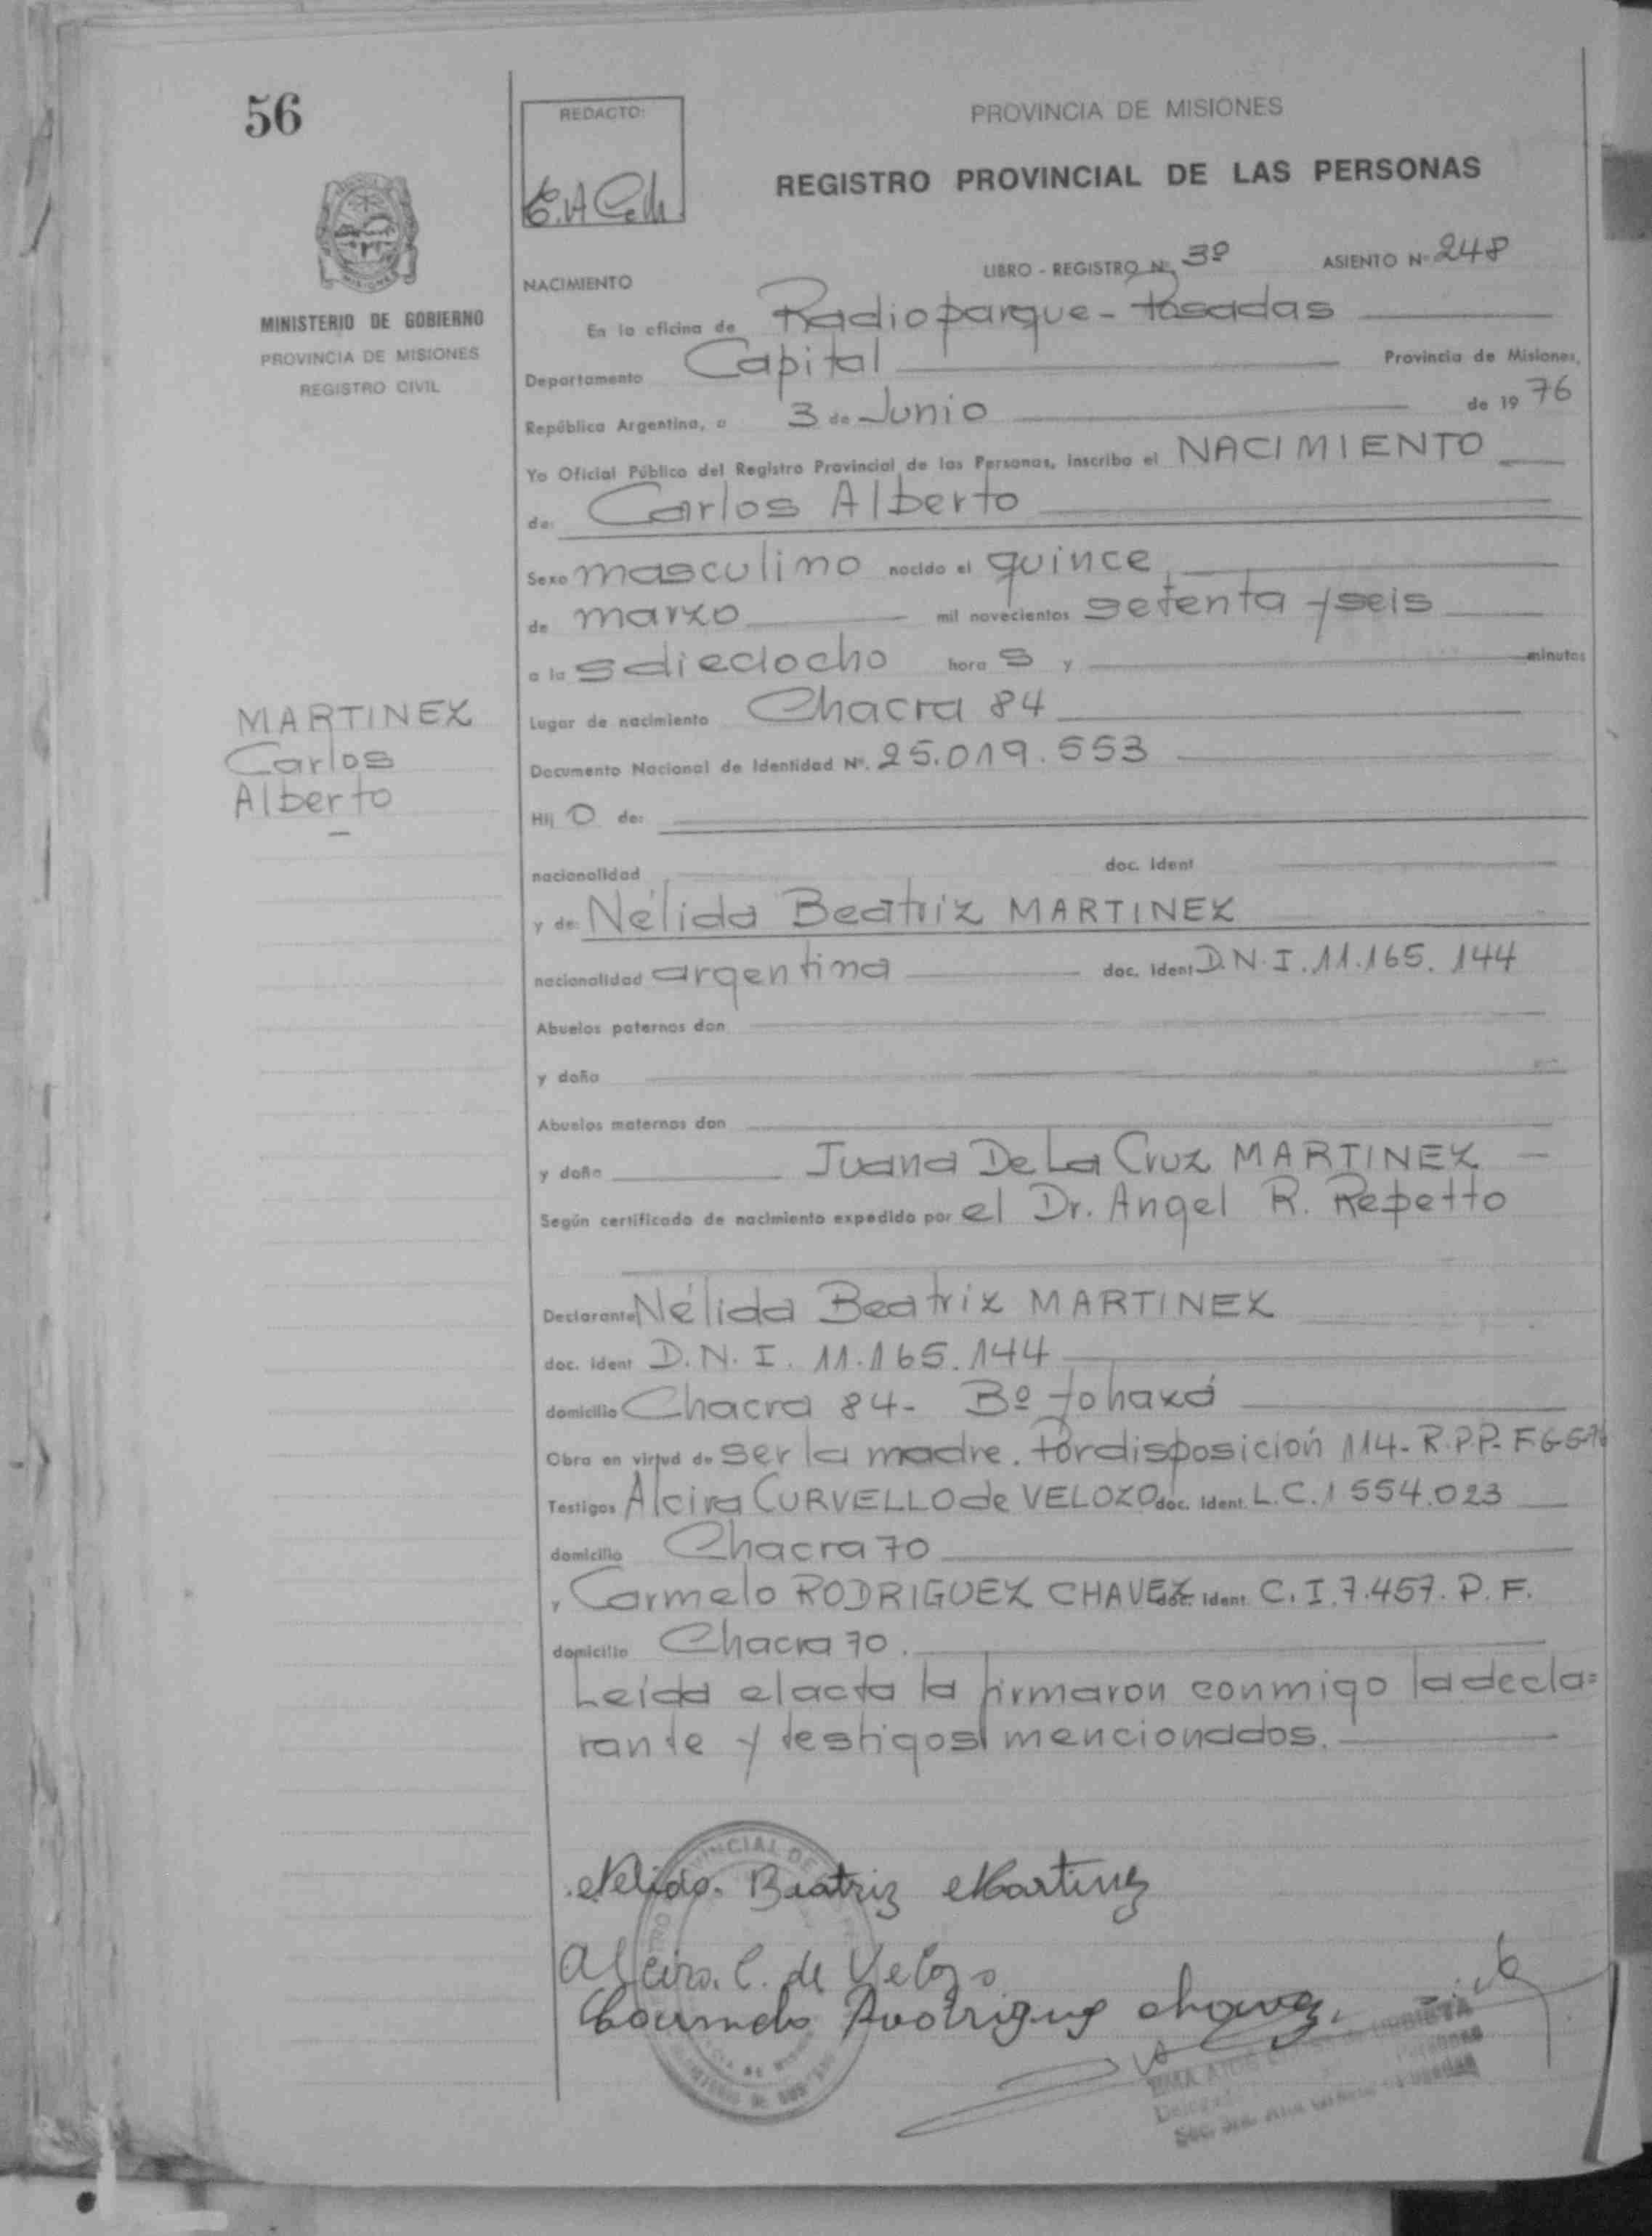 56
REDACTO:
PROVINCIA DE MISIONES
REGISTRO PROVINCIAL DE LAS PERSONAS
LIBRO - REGISTRO Nº 3º ASIENTO Nº 248
NACIMIENTO
MINISTERIO DE GOBIERNO
PROVINCIA DE MISIONES
REGISTRO CIVIL
En la oficina de Radioparque - Posadas
Departamento Capital Provincia de Misiones,
República Argentina, a 3 de Junio de 1976
Yo Oficial Público del Registro Provincial de las Personas, inscribo el NACIMIENTO
de: Carlos Alberto
Sexo masculino nacido el quince
de marzo mil novecientos setenta y seis
a la s dieciocho hora s y minutos
Lugar de nacimiento Chacra 84
MARTINEZ
Carlos
Alberto
Documento Nacional de Identidad Nº. 25.019.553
Hij o de:
nacionalidad doc. Ident
y de: Nélida Beatriz MARTINEZ
nacionalidad argentina doc. Ident D.N.I. 11.165.144
Abuelos paternos don
y doña
Abuelos maternos don
y doña Juana De La Cruz MARTINEZ
Según certificado de nacimiento expedido por el Dr. Angel R. Repetto
Declarante Nélida Beatriz MARTINEZ
doc. Ident D.N.I. 11.165.144
domicilio Chacra 84 - Bº Yohasá
Obra en virtud de ser la madre. Por disposición 114 - R.P.P.
Testigos Alcira CURVELLO de VELOZO doc. Ident. L.C. 1554.023
domicilio Chacra 70
y Carmelo RODRIGUEZ CHAVEZ doc. Ident. C.I. 7.457. P.F.
domicilio Chacra 70.
Leída el acta la firmaron conmigo la decla=
rante y testigos mencionados.
Nelida Beatriz Martinez
Alcira C. de Velozo
Carmelo Rodriguez Chavez